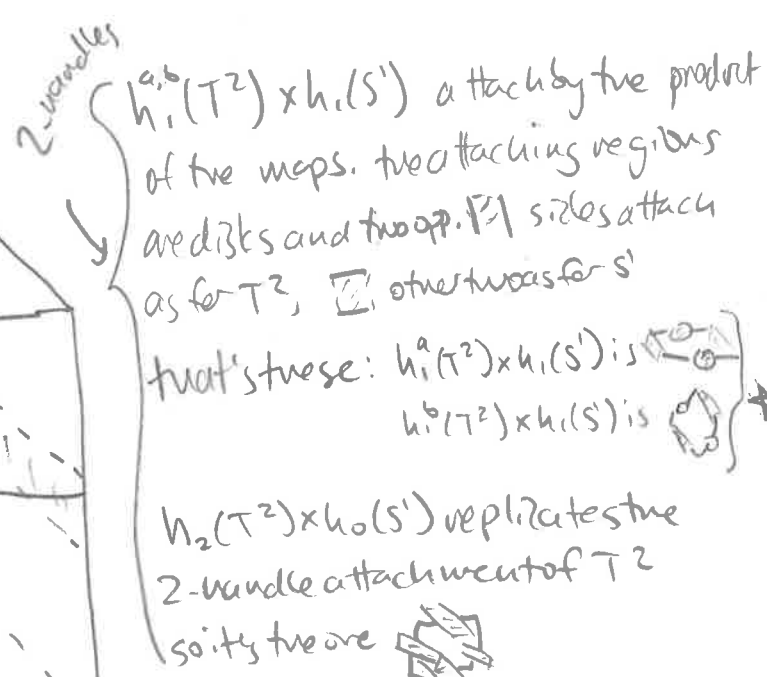 2-handles
h₁^{a,b}(T²) × h₁(S¹) attach by the product
of the maps. the attaching regions
are disks and two opp. sides attach
as for T², other two as for S¹
that's these: h₁^a(T²)×h₁(S¹) is
h₁^b(T²)×h₁(S¹) is
h₂(T²)×h₀(S¹) replicates the
2-handle attachment of T²
so it's the one